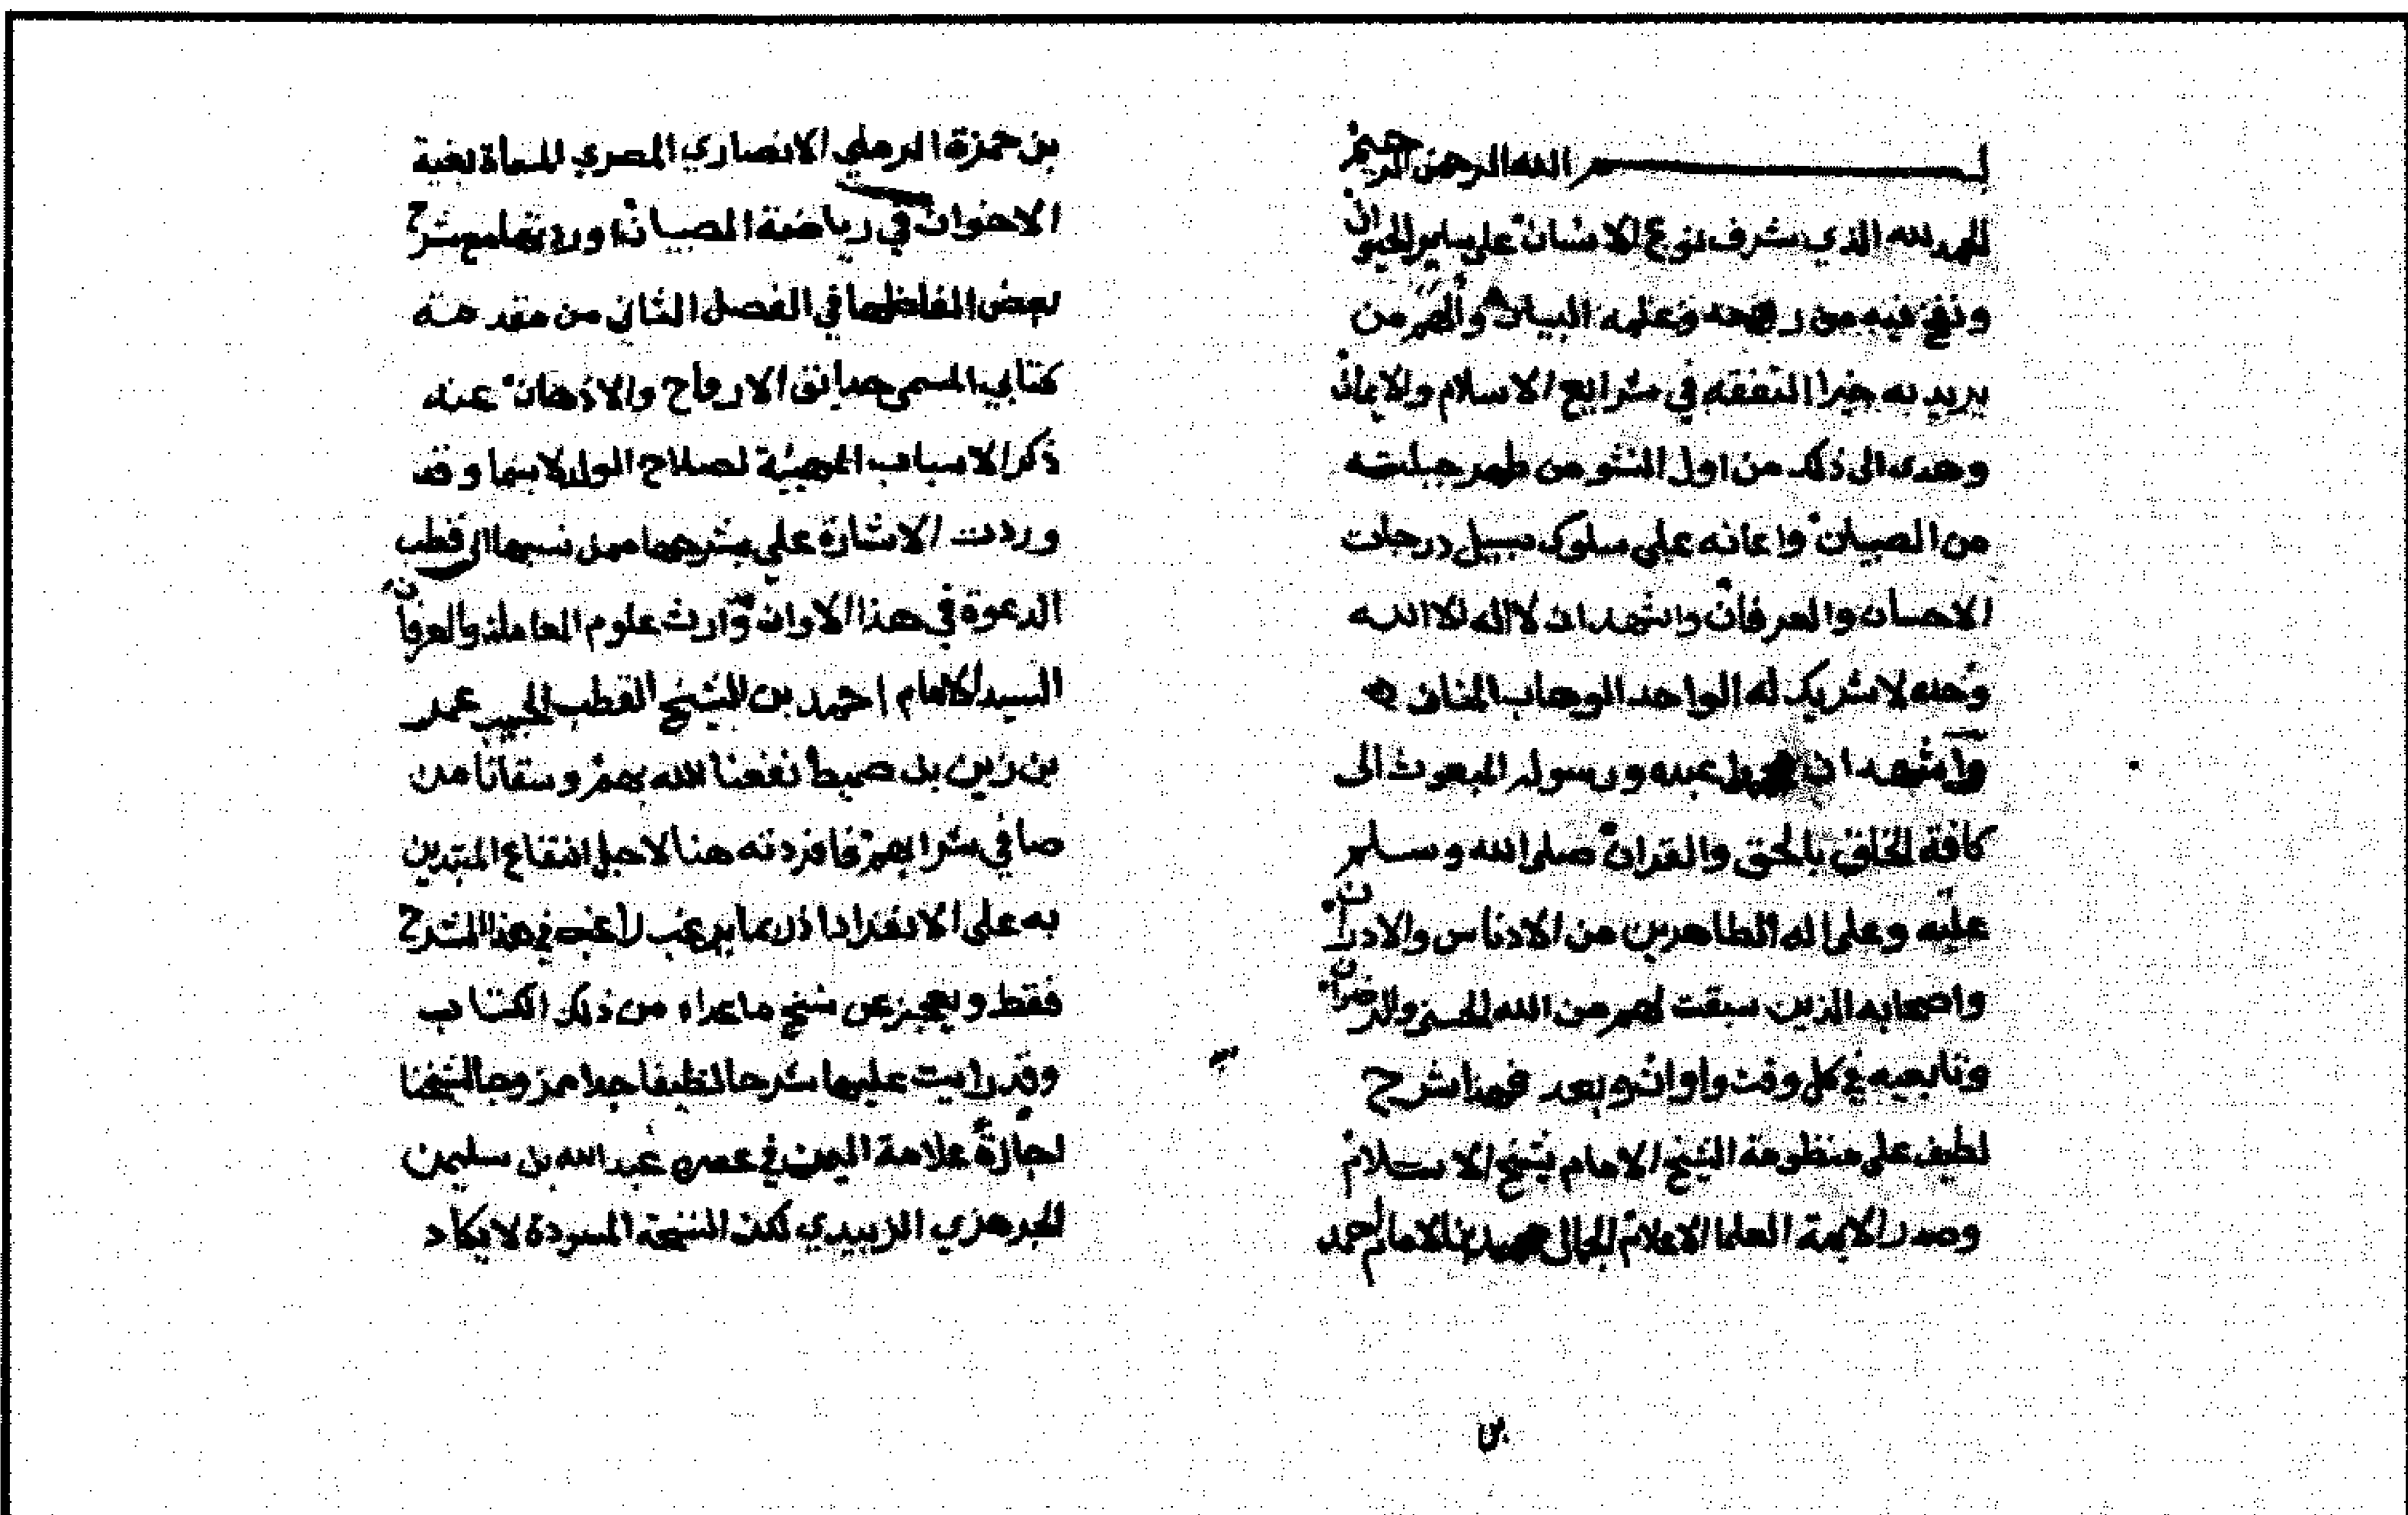 بسم الله الرحمن الرحيم
الحمد لله الذي شرف نوع الانسان على ساير الحيوان
ونفخ فيه من روحه وعلمه البيان والهم من
يريد به خيرا التفقه في شرايع الاسلام والايمان
وهدى الى ذلك من اول النشو من طهر جبلته
من الصبيان واعانه على سلوك سبيل درجات
الاحسان والعرفان واشهد ان لا اله الا الله
وحده لا شريك له الواحد الوهاب المنان
واشهد ان محمدا عبده ورسوله المبعوث الى
كافة الخلق بالحق والقران صلى الله وسلم
عليه وعلى اله الطاهرين من الادناس والادران
واصحابه الذين سبقت لهم من الله الحسنى والرضوان
وتابعيه في كل وقت واوان وبعد فهذا شرح
لطيف على منظومة الشيخ الامام شيخ الاسلام
وصدر الايمة العلما الاعلام الجمال محمد بن الامام احمد
بن
بن حمزة الرملي الانصاري المصري المسماة بغية
الاخوان في رياضة الصبيان اوردتها مع شرح
بعض الفاظها في الفصل الثاني من مقدمة
كتابي المسمى حدائق الارواح والاذهان عند
ذكر الاسباب المهيئة لصلاح الولد لا سيما وقد
وردت الاشارة علي بشرحها ممن نسبها الى قطب
الدعوة في هذا الاوان وارث علوم المعاملة والعرفان
السيد الامام احمد بن الشيخ القطب الحبيب عمر
بن زين بن سميط نفعنا الله بهم وسقانا من
صافي شرابهم فافردته هنا لاجل انتفاع المبتدين
به على الانفراد اذ ربما يرغب راغب في هذا الشرح
فقط ويعجز عن نسخ ما عداه من ذلك الكتاب
وقد رايت عليها شرحا لطيفا جدا ممزوجا لشيخنا
اجازة علامة اليمن في عصره عبد الله بن سليمن
الجرهزي الزبيدي لكن النسخة المسودة لا يكاد